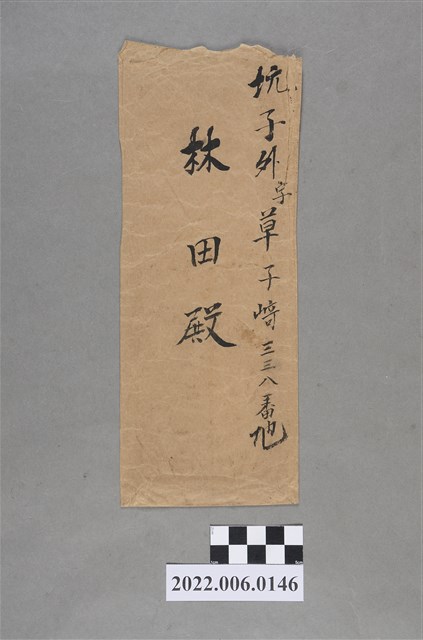 坑子外字草子崎三三八番地
林田殿
2022.006.0146